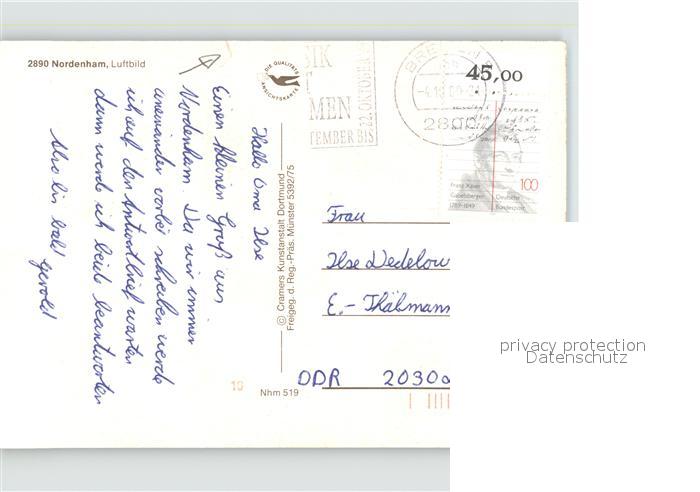 2890 Nordenham, Luftbild
DIE QUALITÄTS
ANSICHTSKARTE
Hallo Oma Ilse
Einen kleinen Gruß aus
Nordenham. Da wir immer
aneinander vorbei schreiben werde
ich auf den Antwortbrief warten
dann werde ich beide beantworten
Also bis bald
Gerold
© Cramers Kunstanstalt Dortmund
Freigeg. d. Reg.-Präs. Münster 5392/75
MEN
TEMBER BIS
22. OKTOBER
2800
45,00
Franz Xaver
Gabelsberger
1789-1849
Deutsche
Bundespost
100
Frau
Ilse Dedelow
E.-Thälmann
DDR 20300
19
Nhm 519
privacy protection
Datenschutz